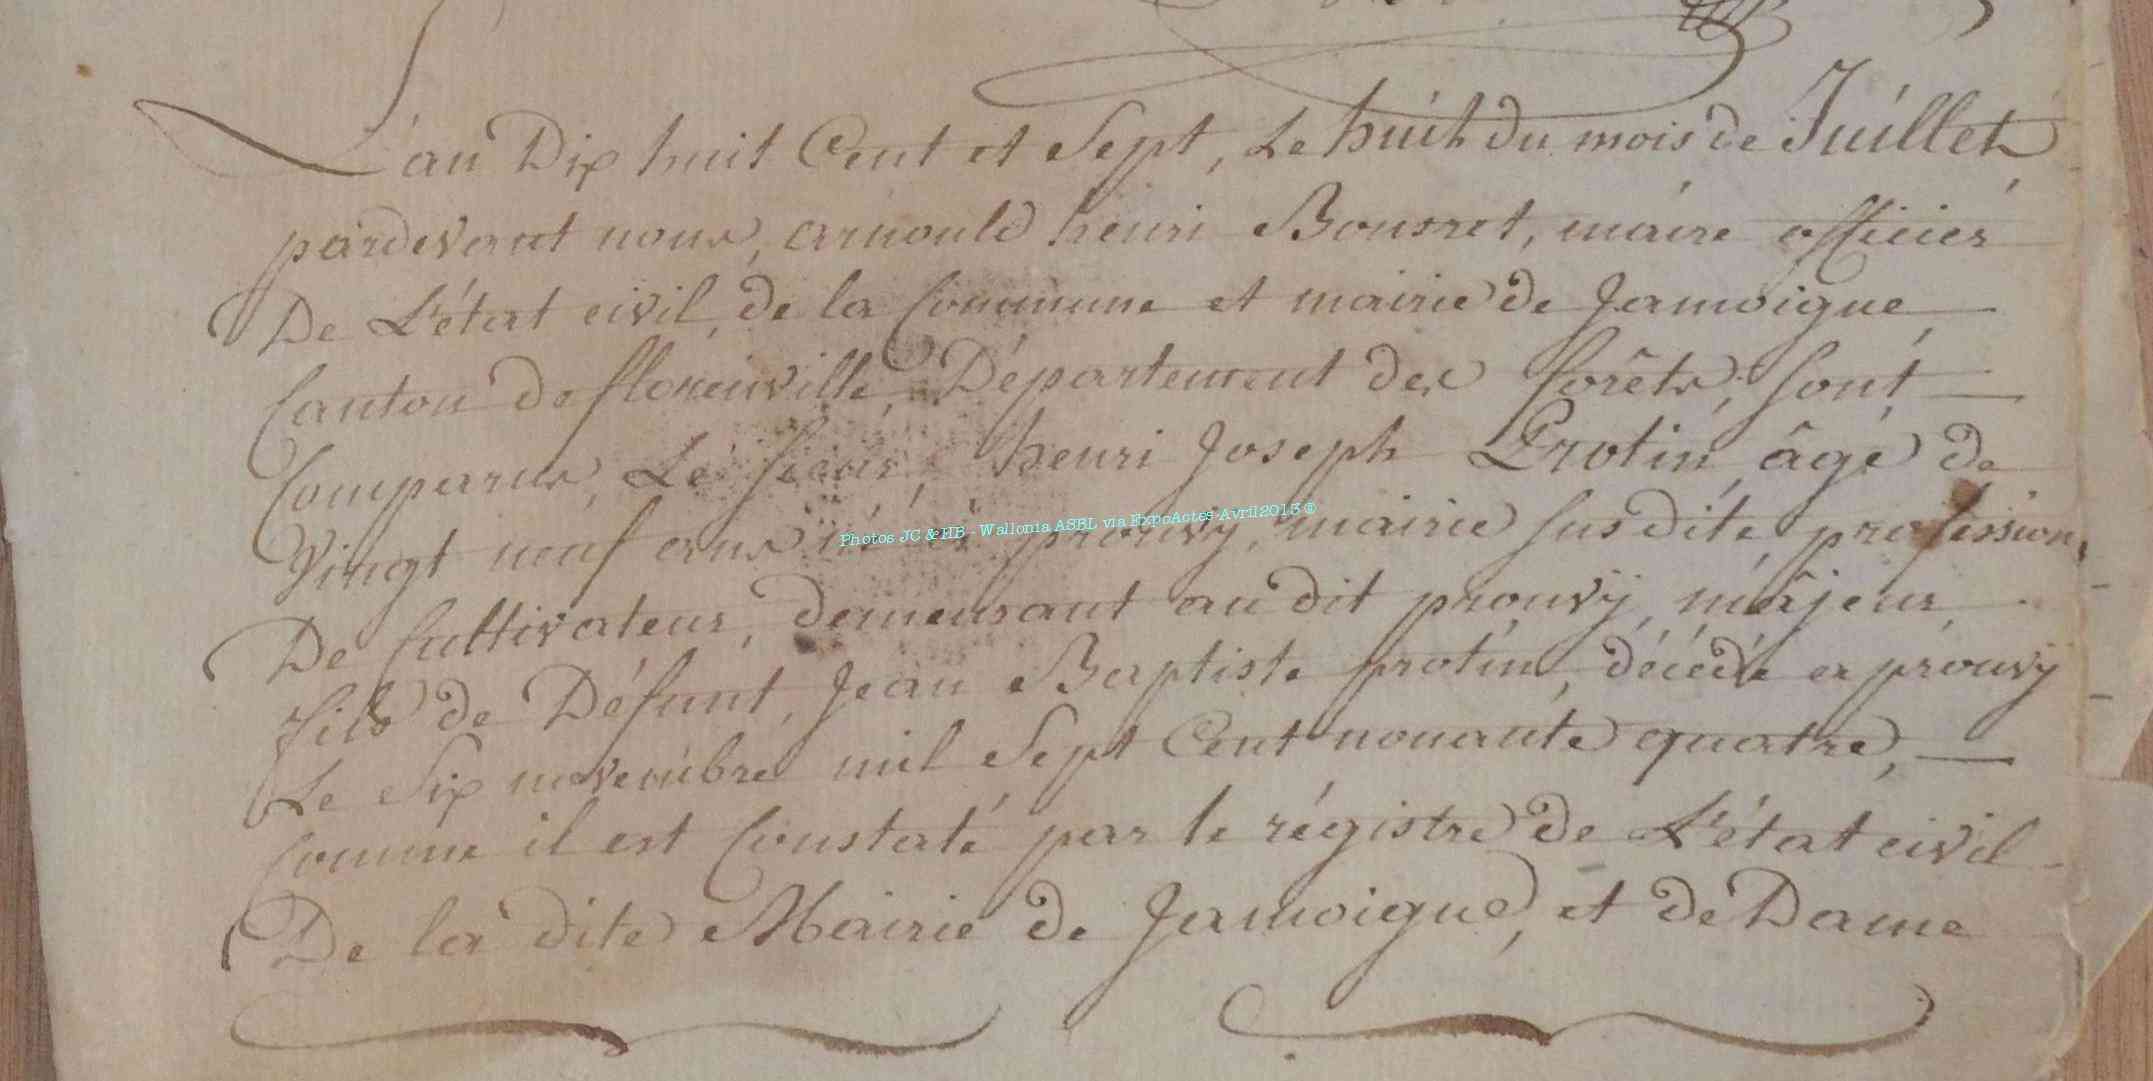 L'an Dix huit Cent et Sept, Le huit du mois de Juillet,
pardevant nous, arnould henri Bousret, maire officier
De L'état civil, de la Commune et mairie de Jamoigne,
Canton de florenville, Département des forêts, sont
Comparus, Le sieur, henri Joseph Protin, âgé de
Vingt neuf ans né à prouvy, mairie susdite, profession,
De Cultivateur, demeurant au dit prouvÿ, majeur,
fils de Défunt, Jean Baptiste protin, décédé a prouvÿ
Le Six novembre mil Sept Cent nonante quatre,
Comme il est Constaté par le régistre de L'état civil
De la dite Mairie de Jamoigne, et de Dame
Photos JC & HB - Wallonia ASBL via ExpoActes-Avril2013 ©